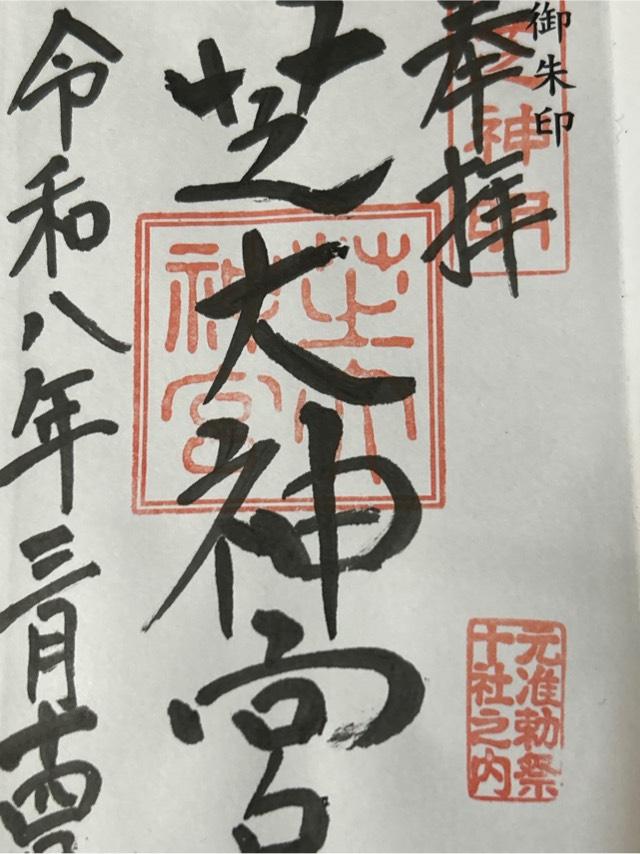 御朱印
奉拝
芝神明
芝大神宮
芝大神宮
元准勅祭
十社之内
令和八年三月十四日